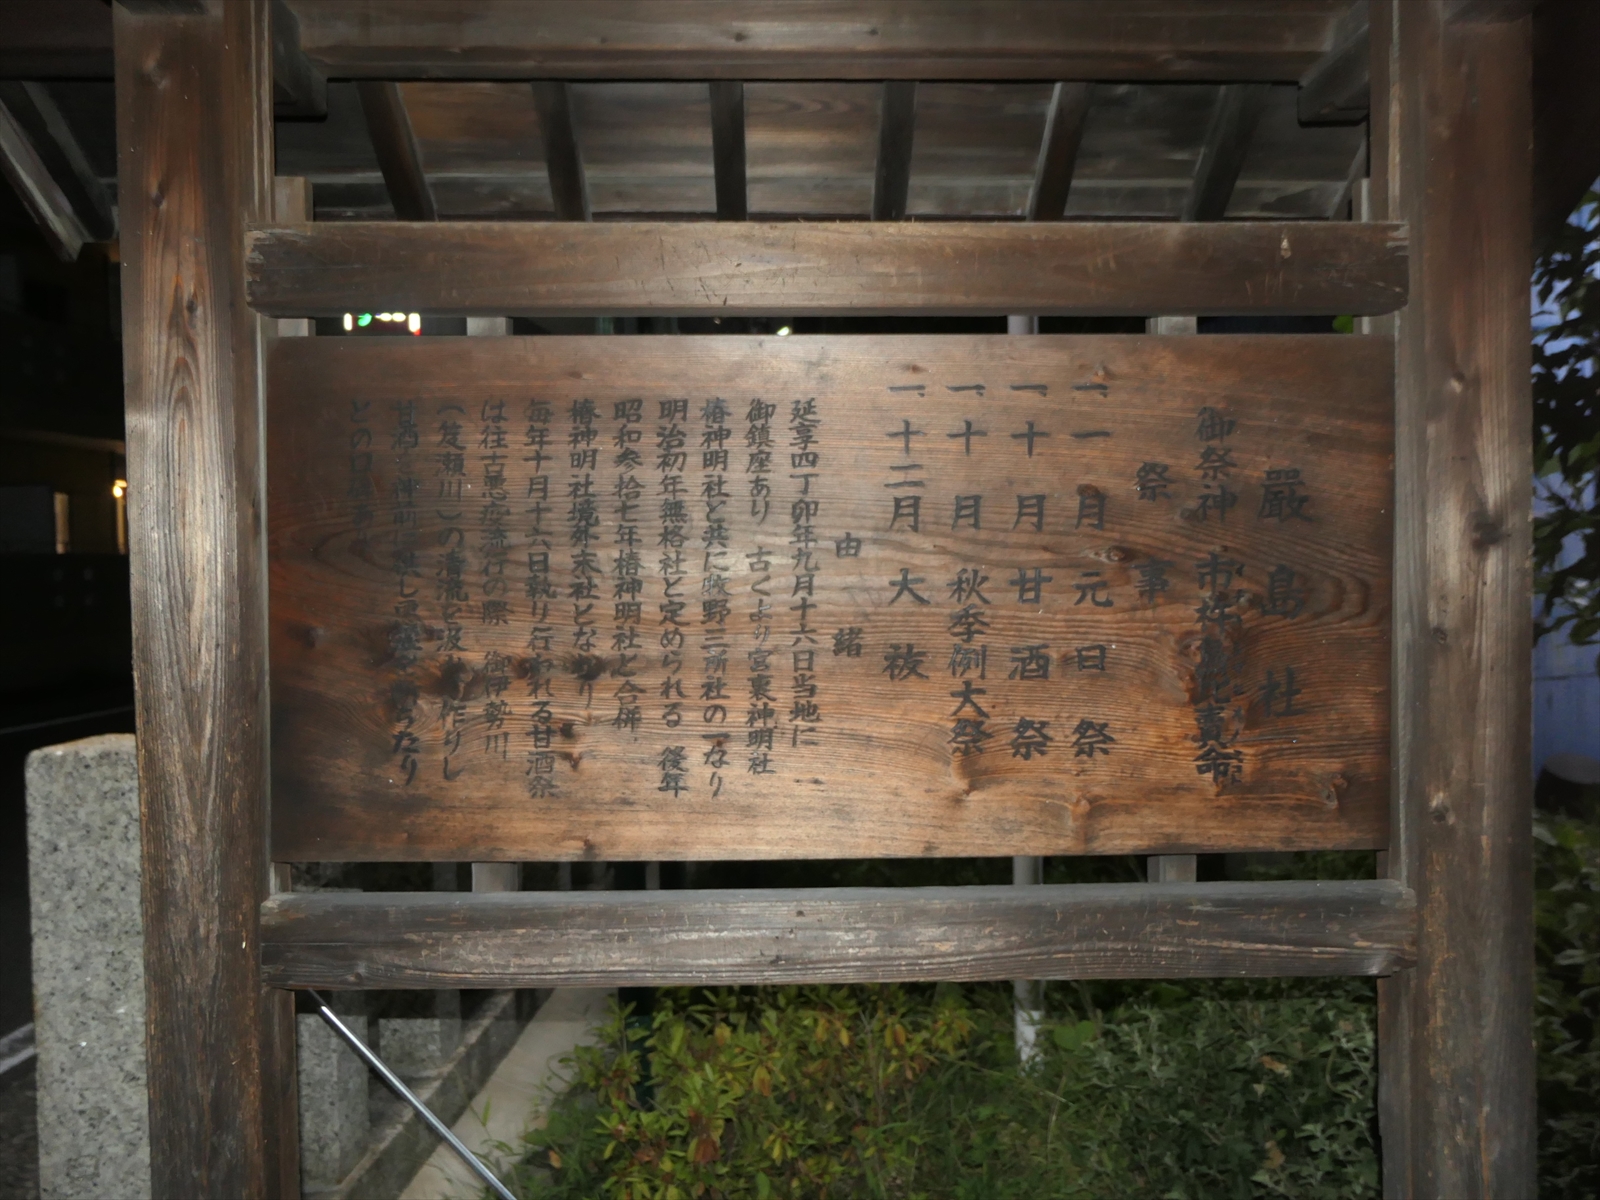 嚴島社
御祭神 市杵島比賣命
祭事
一、一月元日祭
一、十月甘酒祭
一、十月秋季例大祭
一、十二月大祓
由緒
延享四丁卯年九月十六日当地に
御鎮座あり 古くより宮裏神明社
椿神明社と共に牧野三所社の一なり
明治初年無格社と定められる 後年
昭和参拾七年椿神明社と合併、
椿神明社境外末社となり
毎年十月十六日執り行われる甘酒祭
は往古悪疫流行の際 御伊勢川
(笈瀬川)の清流を汲み 作りし
甘酒を神前に供し
との口